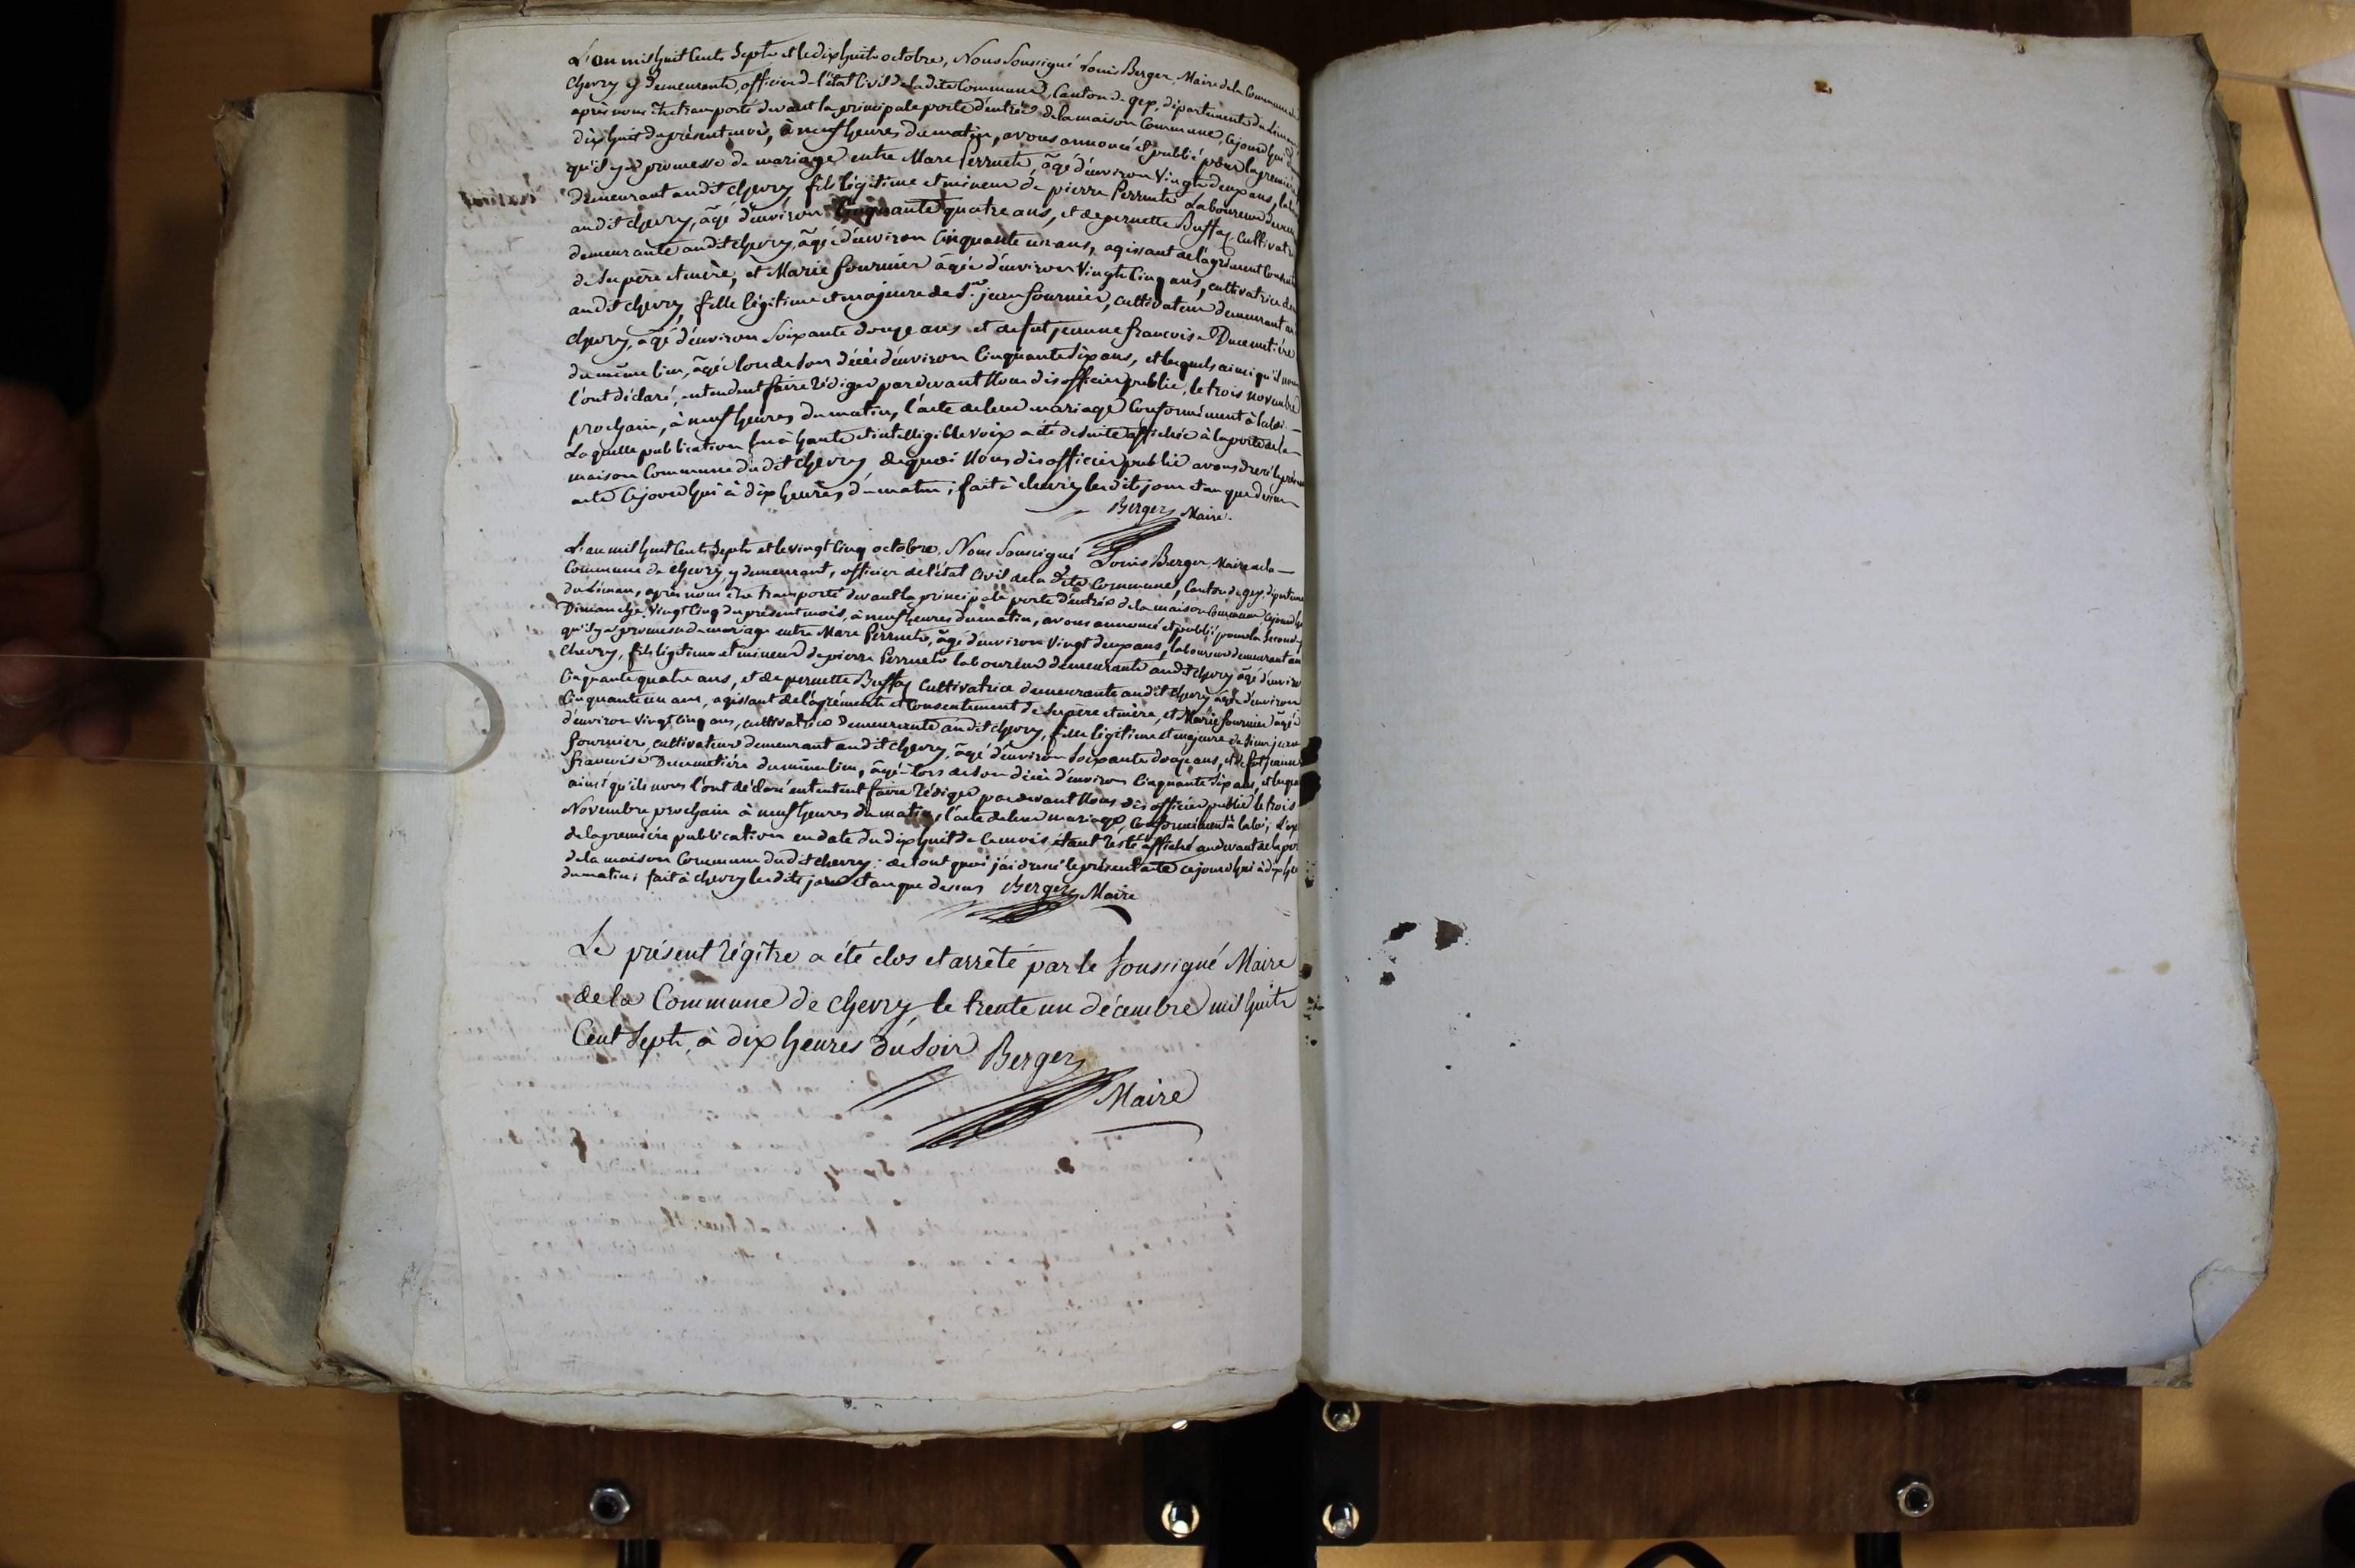 L'an mil huit Cents Sept et le dix huit octobre, Nous Soussigné Louis Berger, Maire de la Commune de
Chevry y demeurant, officier de l'état Civil de la dite Commune, Canton de gex, département du Léman
après nous être transporté devant la principale porte d'entrée de la maison Commune, Cejourd'hui
dix huit du présent mois, à neuf heures du matin, avons annoncé et publié pour la première
qu'il y a promesse de mariage entre Marc Perruete, âgé d'environ Vingt deux ans,
demeurant audit Chevry, fils légitime et mineur de pierre Perruete Laboureur
audit Chevry, âgé d'environ Cinquante quatre ans, et de pernette Buffaz Cultivatrice
demeurante audit Chevry, âgée d'environ Cinquante un ans, agissant de l'agrément
de Ses père et mère, et Marie fournier âgée d'environ Vingt Cinq ans, cultivatrice
audit Chevry, fille légitime et majeure de Sr. jean fournier, cultivateur demeurant au
Chevry, âgé d'environ Soixante douze ans et de fut jeanne francoise Ducimetière
du même lieu, âgée lors de Son décès d'environ Cinquante Six ans, et lesquels ainsi qu'il nous
l'ont déclaré, entendent faire Rédiger pardevant Nous dis officier public, le trois novembre
prochain, à neuf heures du matin, l'acte de leur mariage Conformément à la loi. —
Laquelle publication lue à haute et intelligible voix a été de Suite affichée à la porte de la —
maison Commune du dit Chevry de quoi Nous dis officier public avons dressé le présent
acte Cejourd'hui à dix heures du matin; fait à chevry les dits jour et an que dessus —
Berger Maire.
L'an mil huit Cents Sept et le vingt Cinq octobre, Nous Soussigné Louis Berger, Maire de la —
Commune de Chevry, y demeurant, officier de l'état Civil de la dite Commune, Canton de gex, départeme
du Léman, après nous être transporté devant la principale porte d'entrée de la maison Commune, Cejourd'h
Dimanche Vingt Cinq du présent mois, à neuf heures du matin, avons annoncé et publié pour la Seconde
qu'il y a promesse de mariage entre Marc Perruete, âgé d'environ Vingt deux ans, laboureur demeurant au
Chevry, fils légitime et mineur de pierre Perruete laboureur demeurante audit Chevry âgé d'enviro
Cinquante quatre ans, et de pernette Buffaz Cultivatrice demeurante audit Chevry âgée d'environ
Cinquante un ans, agissant de l'agrémente et Consentement de Ses père et mère, et Marie fournier âgée
d'environ Vingt Cinq ans, cultivatrice demeurante audit Chevry, fille légitime et majeure de Sieur jean
fournier, cultivateur demeurant audit Chevry, âgé d'environ Soixante douze ans, et de fut jeanne
francoise Ducimetière du même lieu, âgée lors de Son décès d'environ Cinquante Six ans, et lesque
ainsi qu'ils nous l'ont déclaré entendent faire Rédiger pardevant Nous dis officier public le trois
Novembre prochain à neuf heures du matin, l'acte de leur mariage, Conformément à la loi; L'ex
de la première publication en date du dix huit de Ce mois, étant Resté affiché au devant de la por
de la maison Commune du dit Chevry: de tout quoi j'ai dressé le présent acte cejourd'hui à dix he
du matin; fait à Chevry les dits jour et an que dessus Berger Maire
Le présent Régître a été clos et arrêté par le Soussigné Maire
de la Commune de Chevry, le trente un décembre mil huit
Cent Sept, à dix heures du Soir Berger
Maire